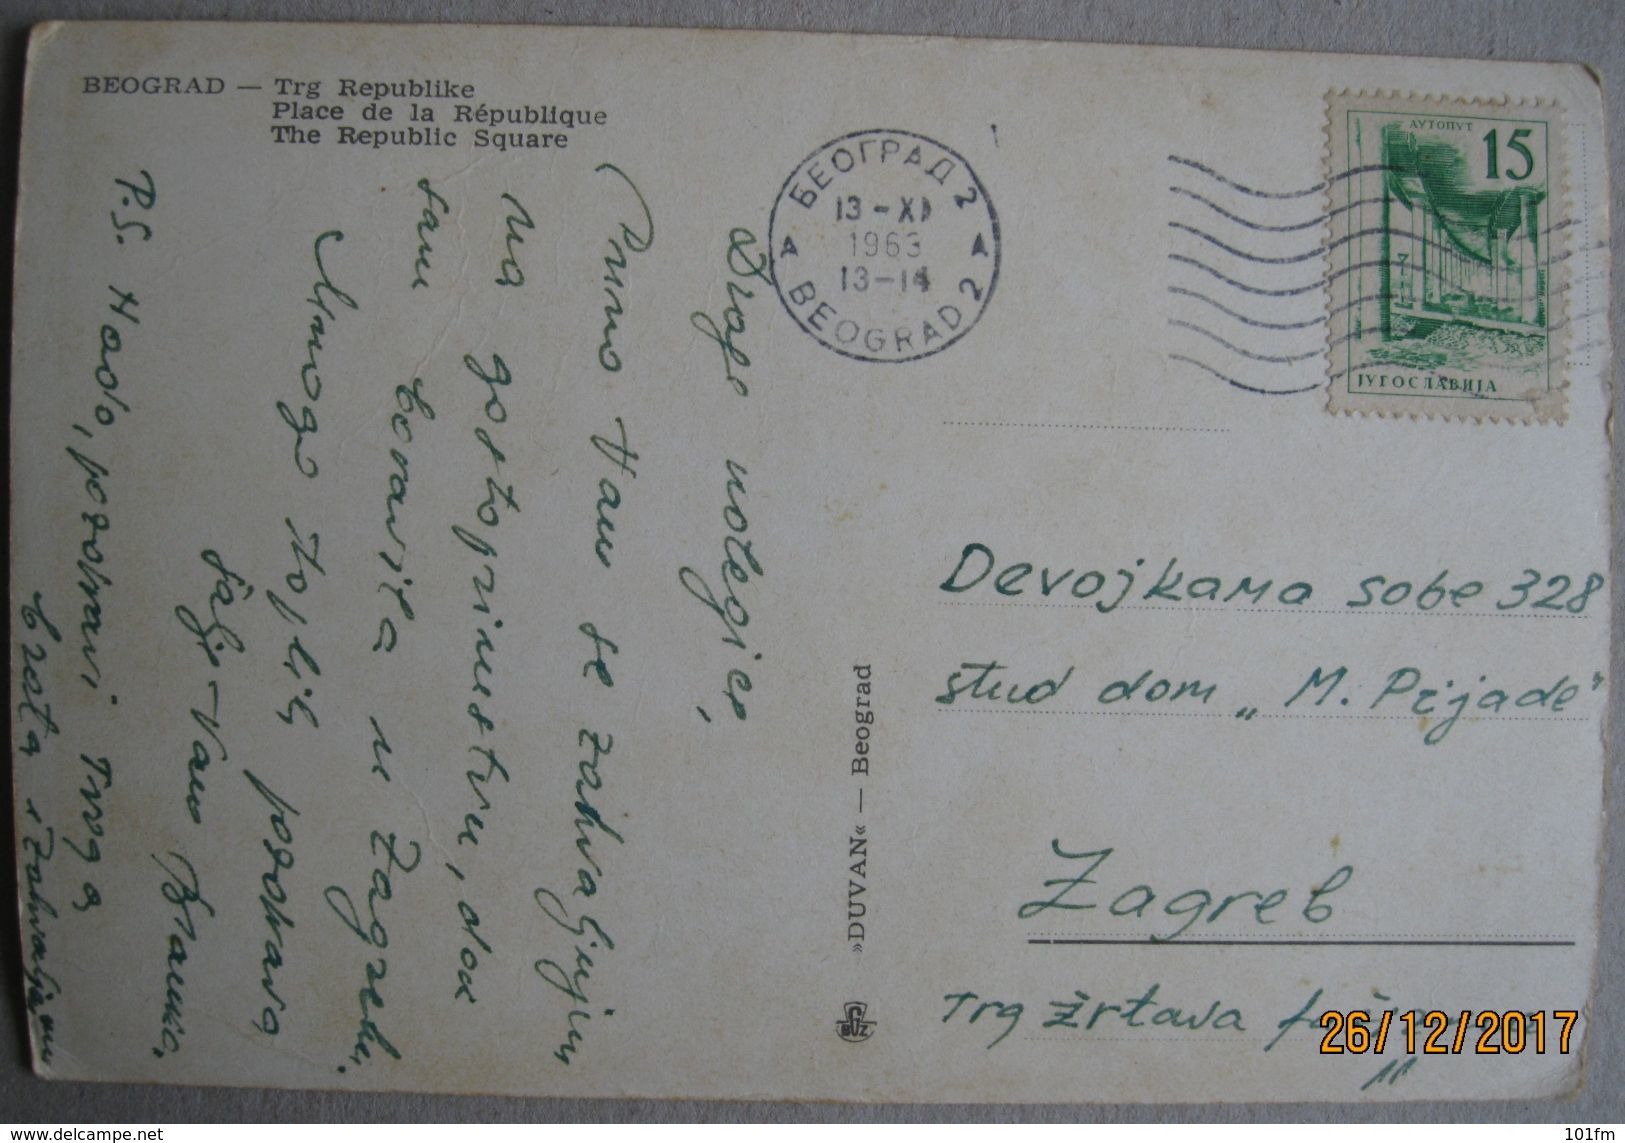 BEOGRAD — Trg Republike
Place de la République
The Republic Square
БЕОГРАД 2
13-XI
1963
13-14
A A
BEOGRAD 2
АУТОПУТ
15
ЈУГОСЛАВИЈА
Drage
Puno Vam se zahvaljujem
na gostoprimstvu, dok
sam boravila u Zagrebu.
Mnogo toplih pozdrava
šalje Vam Branka.
P.S. Hado, pozdravi Trnga
»DUVAN« — Beograd
BGZ
Devojkama sobe 328
stud dom „M. Pijade"
Zagreb
Trg žrtava
26/12/2017
www.delcampe.net
101fm